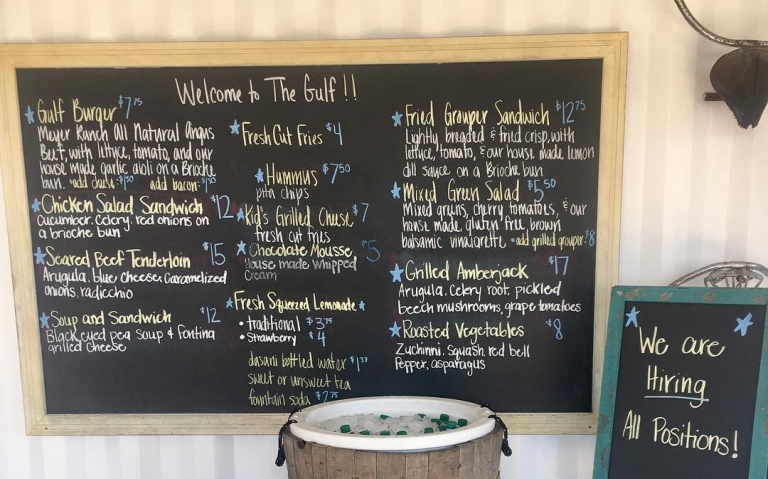 Welcome to The Gulf!!
Gulf Burger $7.75
Meyer Ranch All Natural Angus
Beef, with lettuce, tomato, and our
house made garlic aioli on a Brioche
bun. •add cheese $1.50 add bacon $1.50
Chicken Salad Sandwich $12
cucumber, celery, red onions on
a brioche bun
Seared Beef Tenderloin $15
Arugula, blue cheese, caramelized
onions, radicchio
Soup and Sandwich $12
Black eyed pea soup & Fontina
grilled cheese
Fresh Cut Fries $4
Hummus $7.50
pita chips
Kid's Grilled Cheese $7
fresh cut fries
Chocolate Mousse $5
House made whipped
cream
Fresh Squeezed Lemonade
• traditional $3.75
• Strawberry $4
dasani bottled water
sweet or unsweet tea
fountain soda $2.75
Fried Grouper Sandwich $12.75
Lightly breaded & fried crisp, with
lettuce, tomato, & our house made lemon
dill sauce on a Brioche bun
Mixed Green Salad $5.50
Mixed greens, cherry tomatoes, & our
house made, gluten free, brown
balsamic vinaigrette •add grilled grouper $8
Grilled Amberjack $17
Arugula, celery root, pickled
beech mushrooms, grape tomatoes
Roasted Vegetables $8
Zuchinni, Squash, red bell
Pepper, asparagus
We are
Hiring
All Positions!